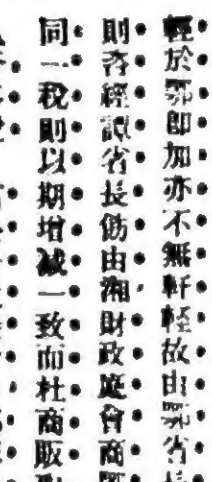 輕於鄂卽加亦不無軒輊故由鄂省長
則咨經譚省長飭由湘財政廳會商
同一税則以期增減一致而杜商販